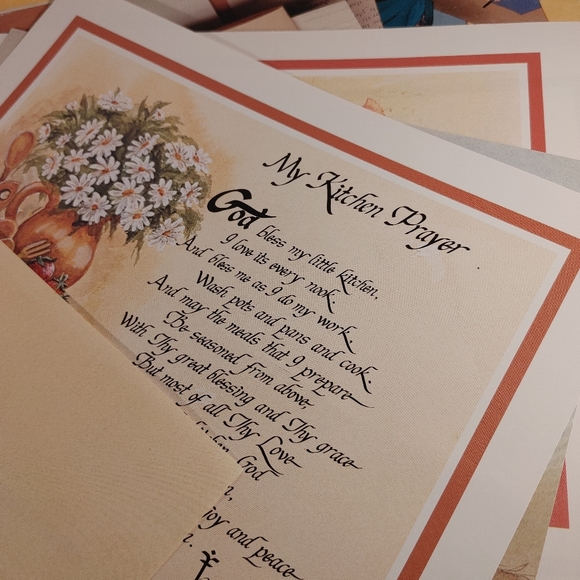 My Kitchen Prayer
God bless my little kitchen,
I love its every nook.
And bless me as I do my work,
Wash pots and pans and cook.
And may the meals that I prepare
Be seasoned from above,
With Thy great blessing and Thy grace
But most of all Thy Love
God
joy and peace